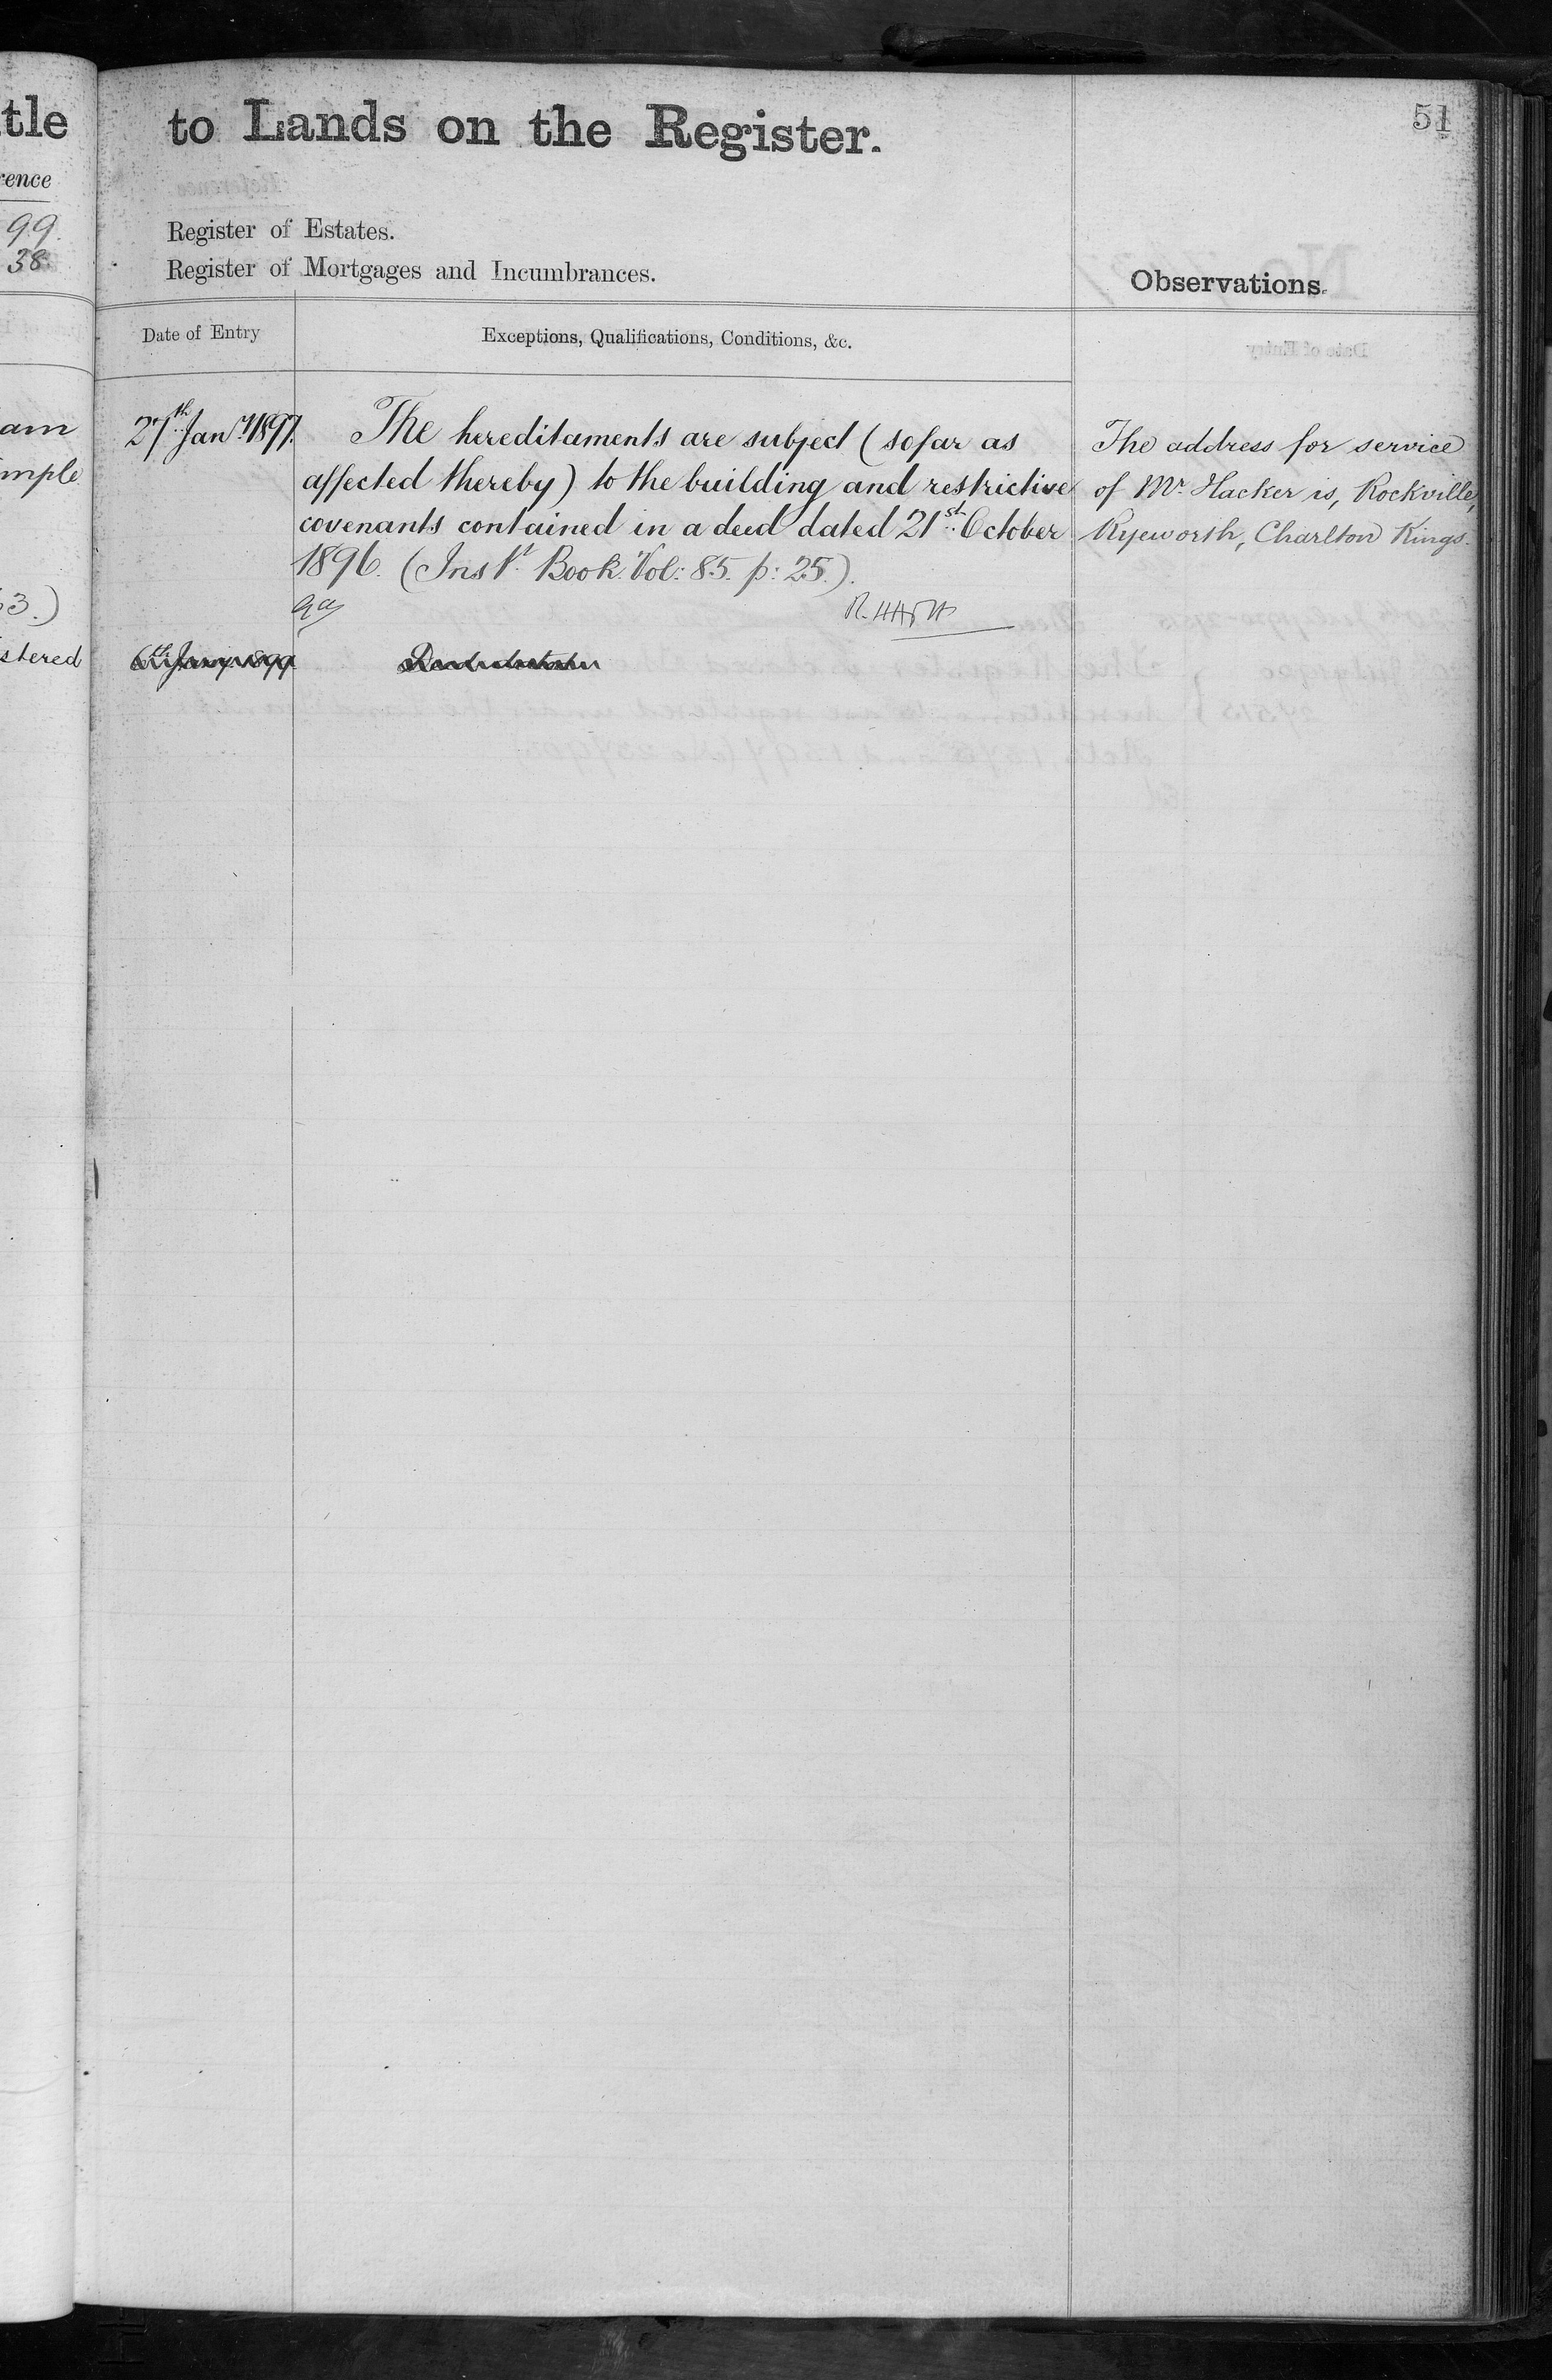 tle
rence
99.
38
am
imple
3.)
stered
to Lands on the Register.
51
Register of Estates.
Register of Mortgages and Incumbrances.
Observations.
Date of Entry
Exceptions, Qualifications, Conditions, &c.
27th Jany 1897.
The hereditaments are subject (so far as
affected thereby) to the building and restrictive
covenants contained in a deed dated 21st October
1896. (Inst. Book. Vol: 85. p: 25.).
6th Jany 1899
The address for service
of Mr. Hacker is, Rockville,
Ryeworth, Charlton Kings.